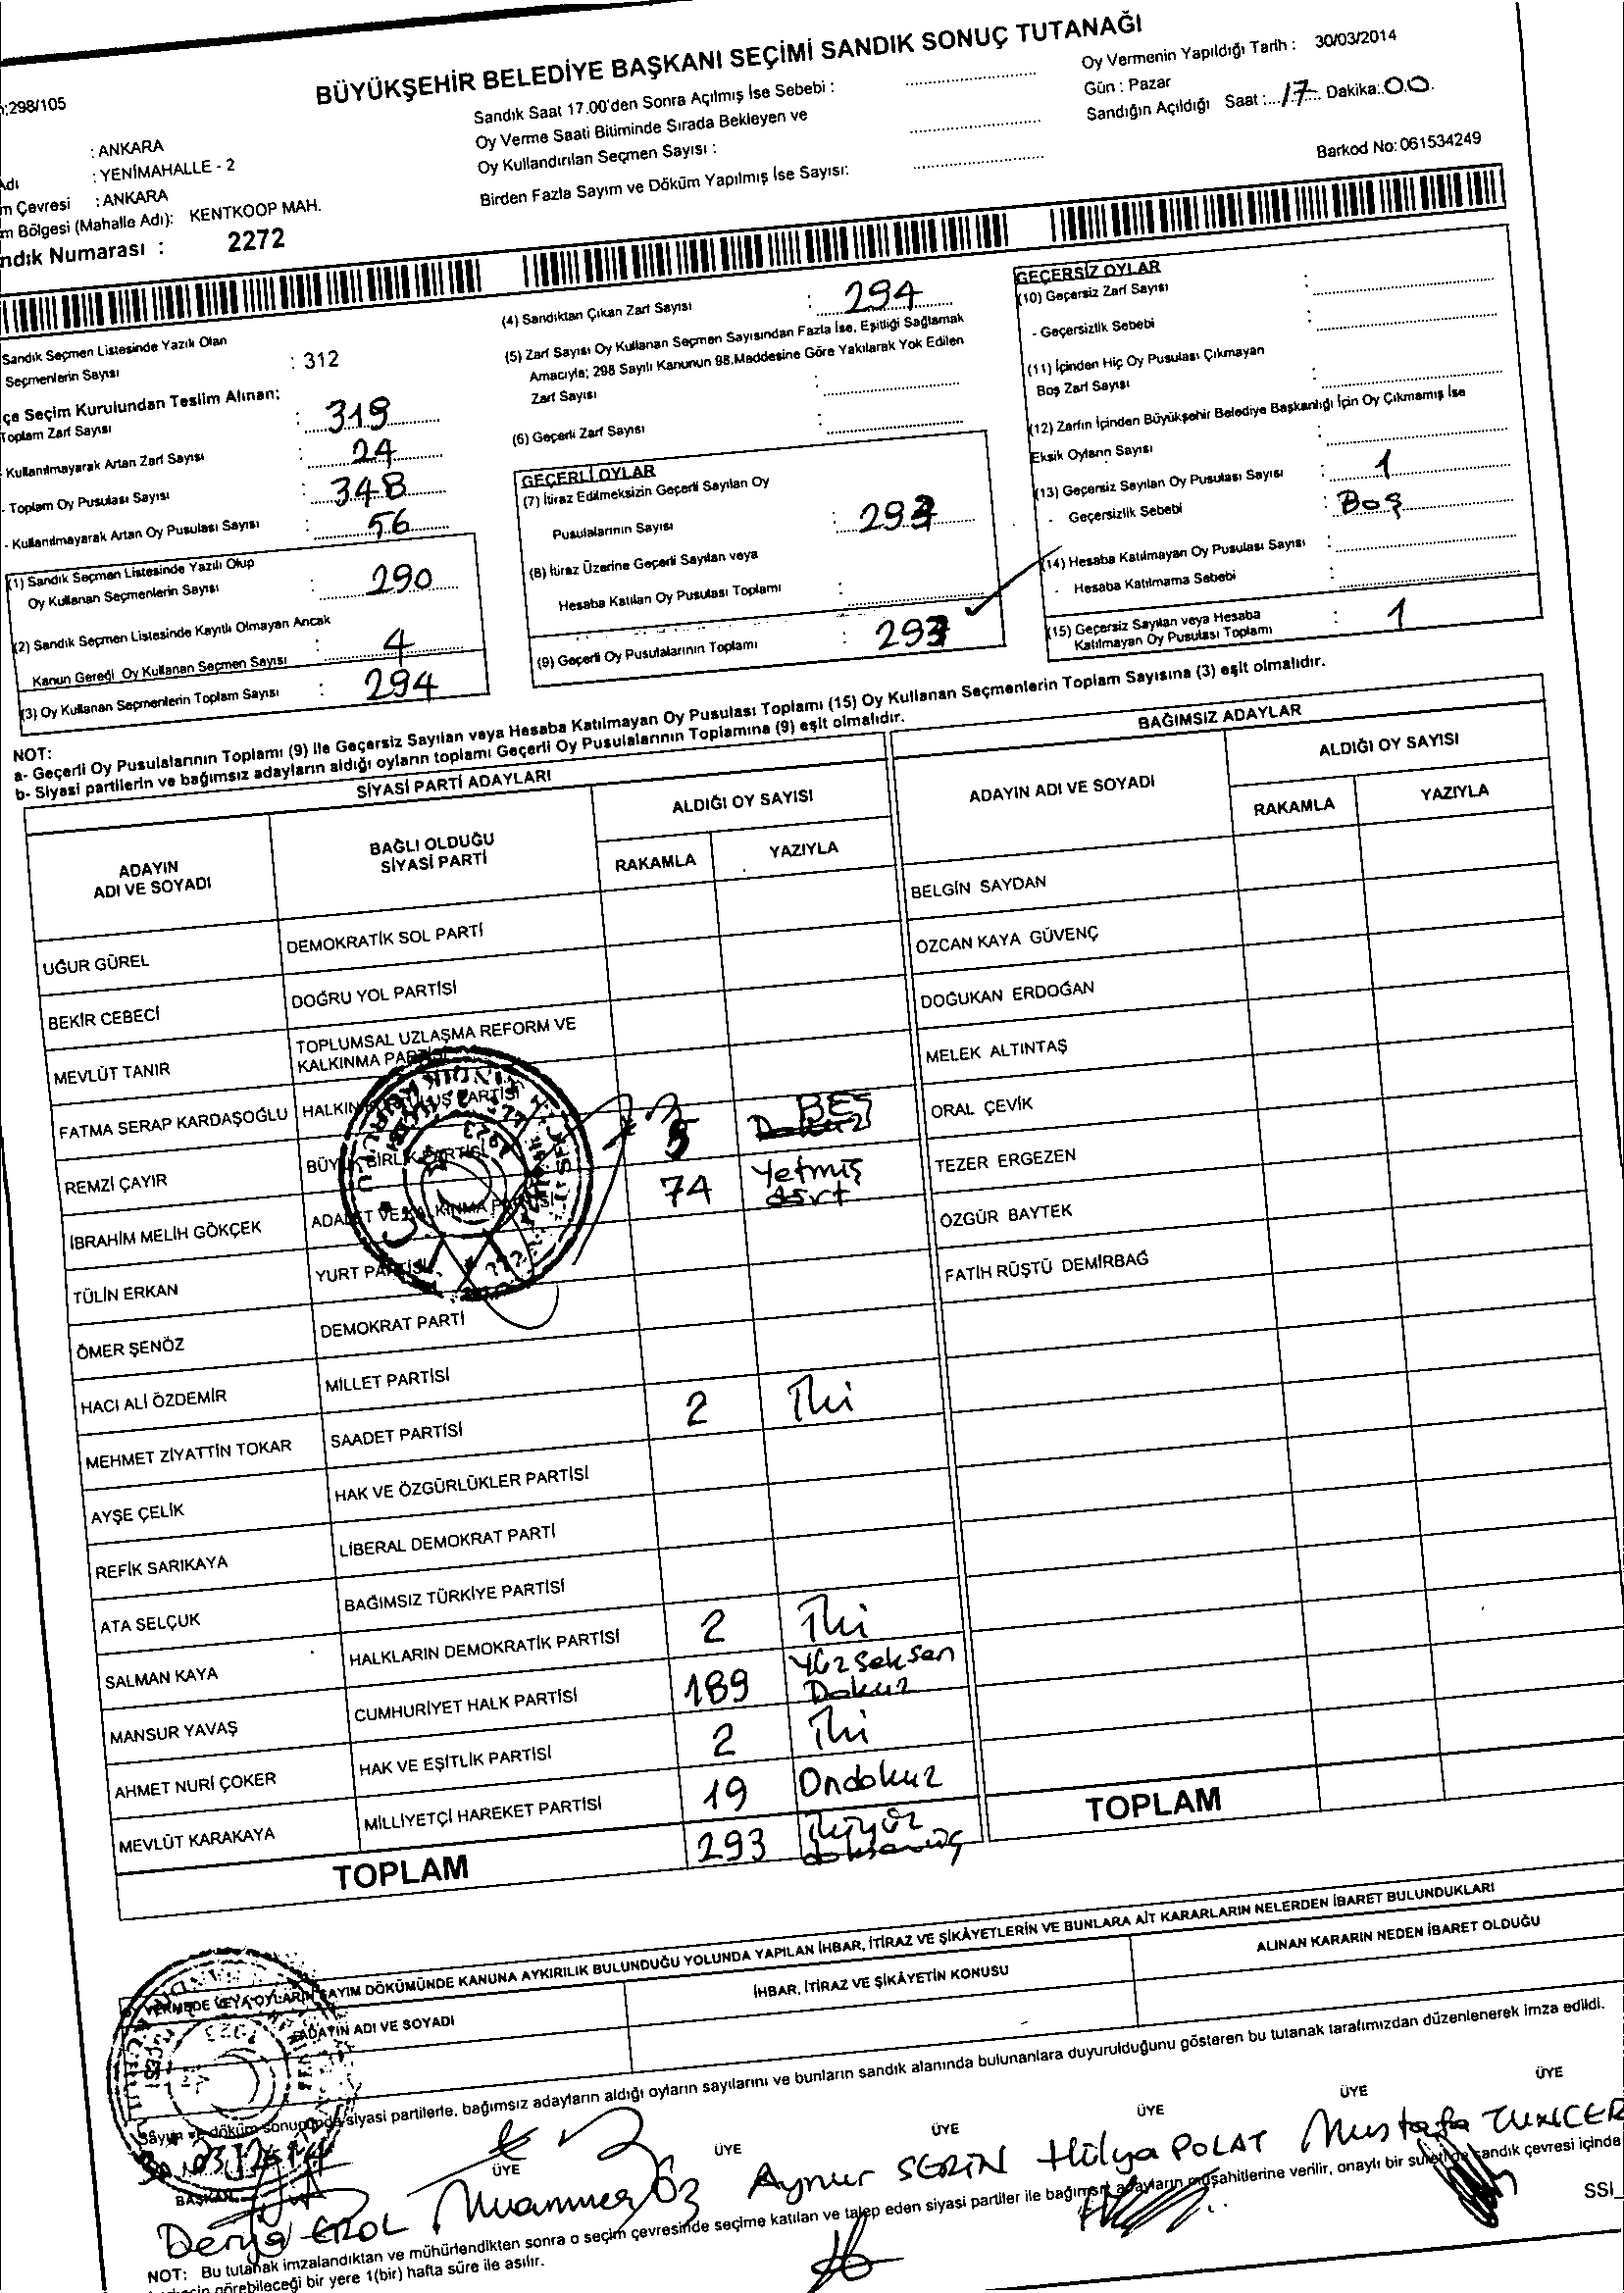 BÜYÜKŞEHİR BELEDİYE BAŞKANI SEÇİMİ SANDIK SONUÇ TUTANAĞI
:298/105
: ANKARA
Adı : YENİMAHALLE - 2
m Çevresi : ANKARA
m Bölgesi (Mahalle Adı): KENTKOOP MAH.
ndık Numarası : 2272
Sandık Saat 17.00'den Sonra Açılmış İse Sebebi :
Oy Verme Saati Bitiminde Sırada Bekleyen ve
Oy Kullandırılan Seçmen Sayısı :
Birden Fazla Sayım ve Döküm Yapılmış İse Sayısı:
Oy Vermenin Yapıldığı Tarih : 30/03/2014
Gün : Pazar
Sandığın Açıldığı Saat : 17 Dakika: 00
Barkod No: 061534249
Sandık Seçmen Listesinde Yazılı Olan
Seçmenlerin Sayısı : 312
çe Seçim Kurulundan Teslim Alınan:
Toplam Zarf Sayısı : 319
- Kullanılmayarak Artan Zarf Sayısı : 24
- Toplam Oy Pusulası Sayısı : 348
- Kullanılmayarak Artan Oy Pusulası Sayısı : 56
(1) Sandık Seçmen Listesinde Yazılı Olup
Oy Kullanan Seçmenlerin Sayısı : 290
(2) Sandık Seçmen Listesinde Kayıtlı Olmayan Ancak
Kanun Gereği Oy Kullanan Seçmen Sayısı : 4
(3) Oy Kullanan Seçmenlerin Toplam Sayısı : 294
(4) Sandıktan Çıkan Zarf Sayısı : 294
(5) Zarf Sayısı Oy Kullanan Seçmen Sayısından Fazla İse, Eşitliği Sağlamak
Amacıyla; 298 Sayılı Kanunun 98.Maddesine Göre Yakılarak Yok Edilen
Zarf Sayısı :
(6) Geçerli Zarf Sayısı :
GEÇERLİ OYLAR
(7) İtiraz Edilmeksizin Geçerli Sayılan Oy
Pusulalarının Sayısı : 293
(8) İtiraz Üzerine Geçerli Sayılan veya
Hesaba Katılan Oy Pusulası Toplamı :
(9) Geçerli Oy Pusulalarının Toplamı : 293
GEÇERSİZ OYLAR
(10) Geçersiz Zarf Sayısı :
- Geçersizlik Sebebi :
(11) İçinden Hiç Oy Pusulası Çıkmayan
Boş Zarf Sayısı :
(12) Zarfın İçinden Büyükşehir Belediye Başkanlığı İçin Oy Çıkmamış İse
Eksik Oyların Sayısı :
(13) Geçersiz Sayılan Oy Pusulası Sayısı : 1
- Geçersizlik Sebebi : Boş
(14) Hesaba Katılmayan Oy Pusulası Sayısı :
- Hesaba Katılmama Sebebi :
(15) Geçersiz Sayılan veya Hesaba
Katılmayan Oy Pusulası Toplamı : 1
NOT:
a- Geçerli Oy Pusulalarının Toplamı (9) ile Geçersiz Sayılan veya Hesaba Katılmayan Oy Pusulası Toplamı (15) Oy Kullanan Seçmenlerin Toplam Sayısına (3) eşit olmalıdır.
b- Siyasi partilerin ve bağımsız adayların aldığı oyların toplamı Geçerli Oy Pusulalarının Toplamına (9) eşit olmalıdır.
SİYASİ PARTİ ADAYLARI
ADAYIN ADI VE SOYADI BAĞLI OLDUĞU SİYASİ PARTİ ALDIĞI OY SAYISI
RAKAMLA YAZIYLA
UĞUR GÜREL DEMOKRATİK SOL PARTİ
BEKİR CEBECİ DOĞRU YOL PARTİSİ
MEVLÜT TANIR TOPLUMSAL UZLAŞMA REFORM VE KALKINMA PARTİSİ
FATMA SERAP KARDAŞOĞLU HALKIN KURTULUŞ PARTİSİ
REMZİ ÇAYIR BÜYÜK BİRLİK PARTİSİ 5 BEŞ
İBRAHİM MELİH GÖKÇEK ADALET VE KALKINMA PARTİSİ 74 Yetmiş
TÜLİN ERKAN YURT PARTİSİ
ÖMER ŞENÖZ DEMOKRAT PARTİ
HACI ALİ ÖZDEMİR MİLLET PARTİSİ
MEHMET ZİYATTİN TOKAR SAADET PARTİSİ 2 İki
AYŞE ÇELİK HAK VE ÖZGÜRLÜKLER PARTİSİ
REFİK SARIKAYA LİBERAL DEMOKRAT PARTİ
ATA SELÇUK BAĞIMSIZ TÜRKİYE PARTİSİ
SALMAN KAYA HALKLARIN DEMOKRATİK PARTİSİ 2 İki
MANSUR YAVAŞ CUMHURİYET HALK PARTİSİ 189 Yüzseksen Dokuz
AHMET NURİ ÇOKER HAK VE EŞİTLİK PARTİSİ 2 İki
MEVLÜT KARAKAYA MİLLİYETÇİ HAREKET PARTİSİ 19 Ondokuz
TOPLAM 293 ikiyüz doksanüç
BAĞIMSIZ ADAYLAR
ADAYIN ADI VE SOYADI ALDIĞI OY SAYISI
RAKAMLA YAZIYLA
BELGİN SAYDAN
ÖZCAN KAYA GÜVENÇ
DOĞUKAN ERDOĞAN
MELEK ALTINTAŞ
ORAL ÇEVİK
TEZER ERGEZEN
ÖZGÜR BAYTEK
FATİH RÜŞTÜ DEMİRBAĞ
TOPLAM
VERMEDE VEYA OYLARIN SAYIM DÖKÜMÜNDE KANUNA AYKIRILIK BULUNDUĞU YOLUNDA YAPILAN İHBAR, İTİRAZ VE ŞİKÂYETLERİN VE BUNLARA AİT KARARLARIN NELERDEN İBARET BULUNDUKLARI
ADAYIN ADI VE SOYADI İHBAR, İTİRAZ VE ŞİKÂYETİN KONUSU ALINAN KARARIN NEDEN İBARET OLDUĞU
Sayım ve döküm sonucunda siyasi partilerle, bağımsız adayların aldığı oyların sayılarını ve bunların sandık alanında bulunanlara duyurulduğunu gösteren bu tutanak tarafımızdan düzenlenerek imza edildi.
BAŞKAN ÜYE ÜYE ÜYE ÜYE ÜYE ÜYE
Derya EROL Muammer Öz Aynur SERİN Hülya POLAT Mustafa TUNCER
NOT: Bu tutanak imzalandıktan ve mühürlendikten sonra o seçim çevresinde seçime katılan ve talep eden siyasi partiler ile bağımsız adayların müşahitlerine verilir, onaylı bir sureti de sandık çevresi içinde
görebileceği bir yere 1(bir) hafta süre ile asılır.
SSI_